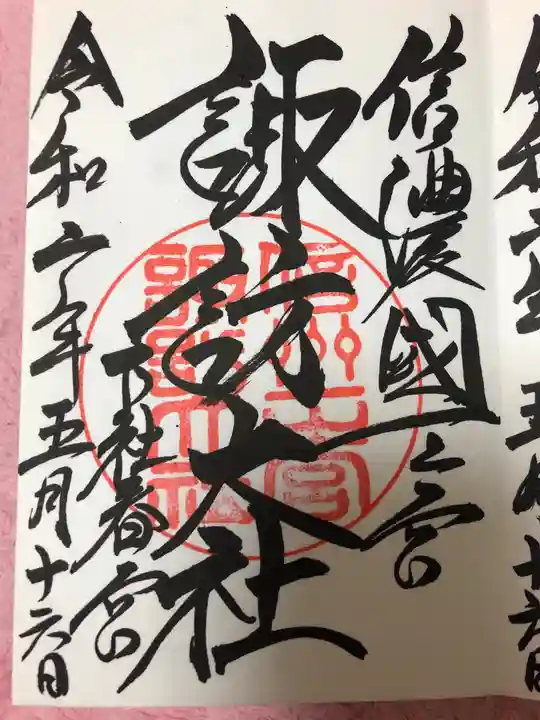 信濃國一之宮
諏訪大社
下社春宮
令和六年五月十六日